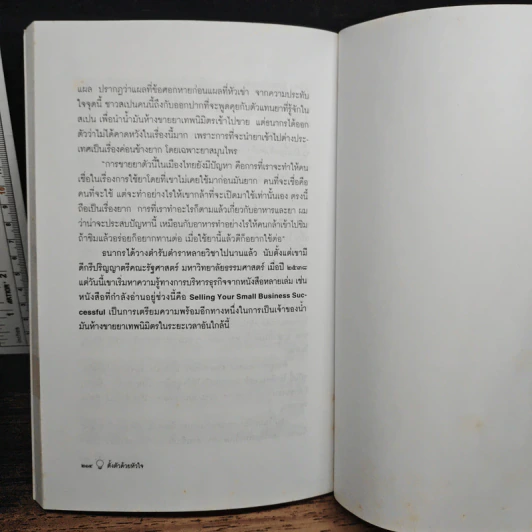 แผล ปรากฏว่าแผลที่ข้อศอกหายก่อนแผลที่หัวเข่า จากความประทับ
ใจจุดนี้ ชาวสเปนคนนี้ถึงกับออกปากที่จะพูดคุยกับตัวแทนยาที่รู้จักใน
สเปน เพื่อนำน้ำมันห้างขายยาเทพนิมิตรเข้าไปขาย แต่ธนากรได้ออก
ตัวว่าไม่ได้คาดหวังในเรื่องนี้มาก เพราะการที่จะนำยาเข้าไปต่างประ-
เทศเป็นเรื่องค่อนข้างยาก โดยเฉพาะยาสมุนไพร
"การขายยาตัวนี้ในเมืองไทยยังมีปัญหา คือการที่เราจะทำให้คน
เชื่อในเรื่องการใช้ยาโดยที่เขาไม่เคยใช้มาก่อนมันยาก คนที่จะเชื่อคือ
คนที่จะใช้ แต่จะทำอย่างไรให้เขากล้าที่จะเปิดมาใช้เท่านั้นเอง ตรงนี้
ถือเป็นเรื่องยาก การที่เราทำอะไรก็ตามแล้วเกี่ยวกับอาหารและยา ผม
ว่าน่าจะประสบปัญหานี้ เหมือนกับอาหารทำอย่างไรให้คนกล้าเข้าไปชิม
ถ้าชิมแล้วอร่อยก็อยากทานต่อ เมื่อใช้ยานี้แล้วดีก็อยากใช้ต่อ"
ธนากรได้วางตำรับตำราหลายวิชาไปนานแล้ว นับตั้งแต่เขามี
ดีกรีปริญญาตรีคณะรัฐศาสตร์ มหาวิทยาลัยธรรมศาสตร์ เมื่อปี ๒๕๓๘
แต่วันนี้เขาเริ่มหาความรู้ทางการบริหารธุรกิจจากหนังสือหลายเล่ม เช่น
หนังสือที่กำลังอ่านอยู่ช่วงนี้คือ Selling Your Small Business Suc-
cessful เป็นการเตรียมความพร้อมอีกทางหนึ่งในการเป็นเจ้าของน้ำ
มันห้างขายยาเทพนิมิตรในระยะเวลาอันใกล้นี้
ตั้งตัวด้วยหัวใจ